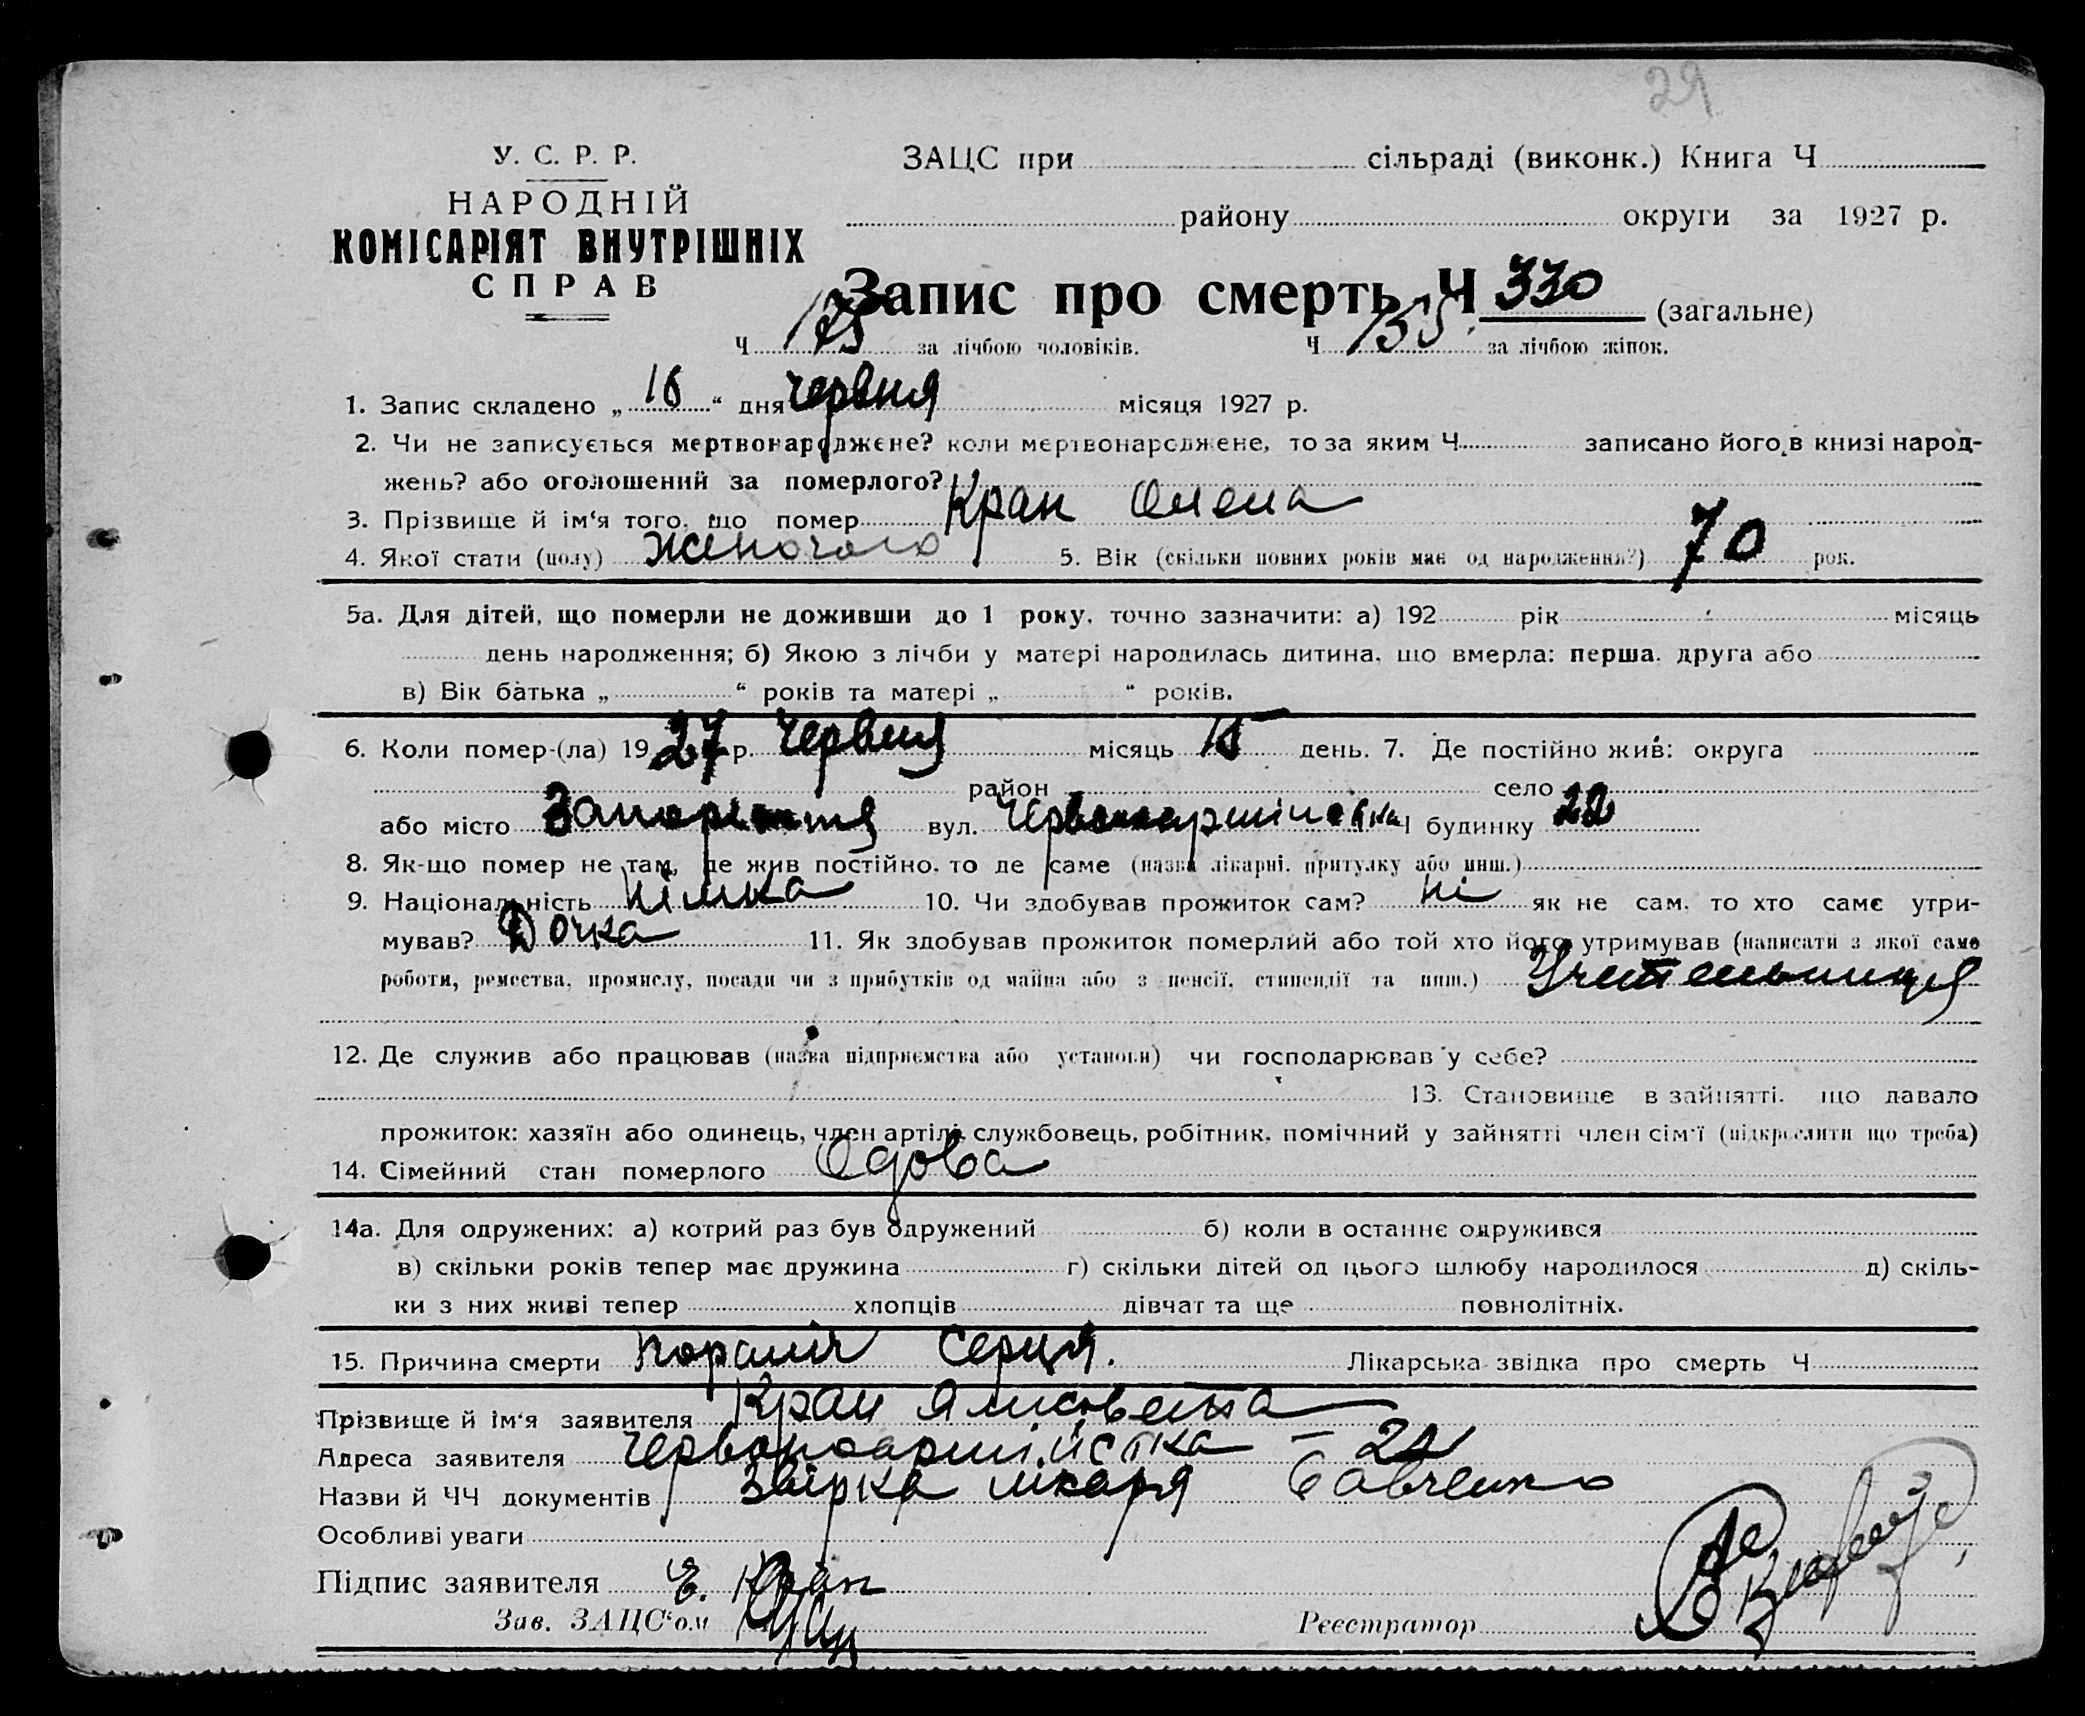 29
У. С. Р. Р.
НАРОДНІЙ
КОМІСАРІЯТ ВНУТРІШНІХ
СПРАВ
ЗАЦС при сільраді (виконк.) Книга Ч
району округи за 1927 р.
Запис про смерть Ч 330 (загальне)
Ч 175 за лічбою чоловіків. Ч 155 за лічбою жінок.
1. Запис складено „16“ дня червня місяця 1927 р.
2. Чи не записується мертвонароджене? коли мертвонароджене, то за яким Ч записано його в книзі народ-
жень? або оголошений за померлого?
3. Прізвище й ім‘я того, що помер Кран Олена
4. Якої стати (полу) жіночого 5. Вік (скільки повних років має од народження?) 70 рок.
5а. Для дітей, що померли не доживши до 1 року, точно зазначити: а) 192 рік місяць
день народження; б) Якою з лічби у матері народилась дитина, що вмерла: перша, друга або
в) Вік батька „ “ років та матері „ “ років.
6. Коли помер-(ла) 1927 р. червня місяць 15 день. 7. Де постійно жив: округа
район село
або місто Запоріжжя вул. Червоноармійська будинку 22
8. Як-що помер не там, де жив постійно, то де саме (назва лікарні, притулку або инш.)
9. Національність німка 10. Чи здобував прожиток сам? ні як не сам, то хто саме утри-
мував? Дочка 11. Як здобував прожиток померлий або той хто його утримував (написати з якої саме
роботи, ремества, промислу, посади чи з прибутків од майна або з пенсії, стипендії та инш.) Учительниця
12. Де служив або працював (назва підприємства або установи) чи господарював у себе?
13. Становище в зайнятті, що давало
прожиток: хазяїн або одинець, член артілі, службовець, робітник, помічний у зайнятті член сім‘ї (підкреслити що треба)
14. Сімейний стан померлого Удова
14а. Для одружених: а) котрий раз був одружений б) коли в останнє одружився
в) скільки років тепер має дружина г) скільки дітей од цього шлюбу народилося д) скіль-
ки з них живі тепер хлопців дівчат та ще повнолітніх.
15. Причина смерти параліч серця. Лікарська звідка про смерть Ч
Прізвище й ім‘я заявителя Кран Єлисавета
Адреса заявителя Червоноармійська – 22
Назви й ЧЧ документів Звірка лікаря Савченко
Особливі уваги
Підпис заявителя Е. Кран
Зав. ЗАЦС‘ом Реєстратор